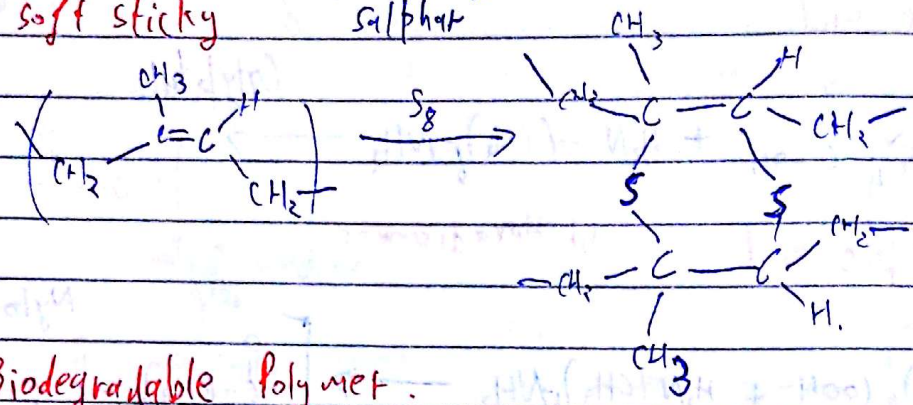 soft sticky sulphur
CH3 CH3 H
CH3 H CH2 C — C CH2 —
( CH2 C=C CH2 ) S8 →
S S
— CH2 — C — C CH2 —
CH3 H.
Biodegradable Polymer.